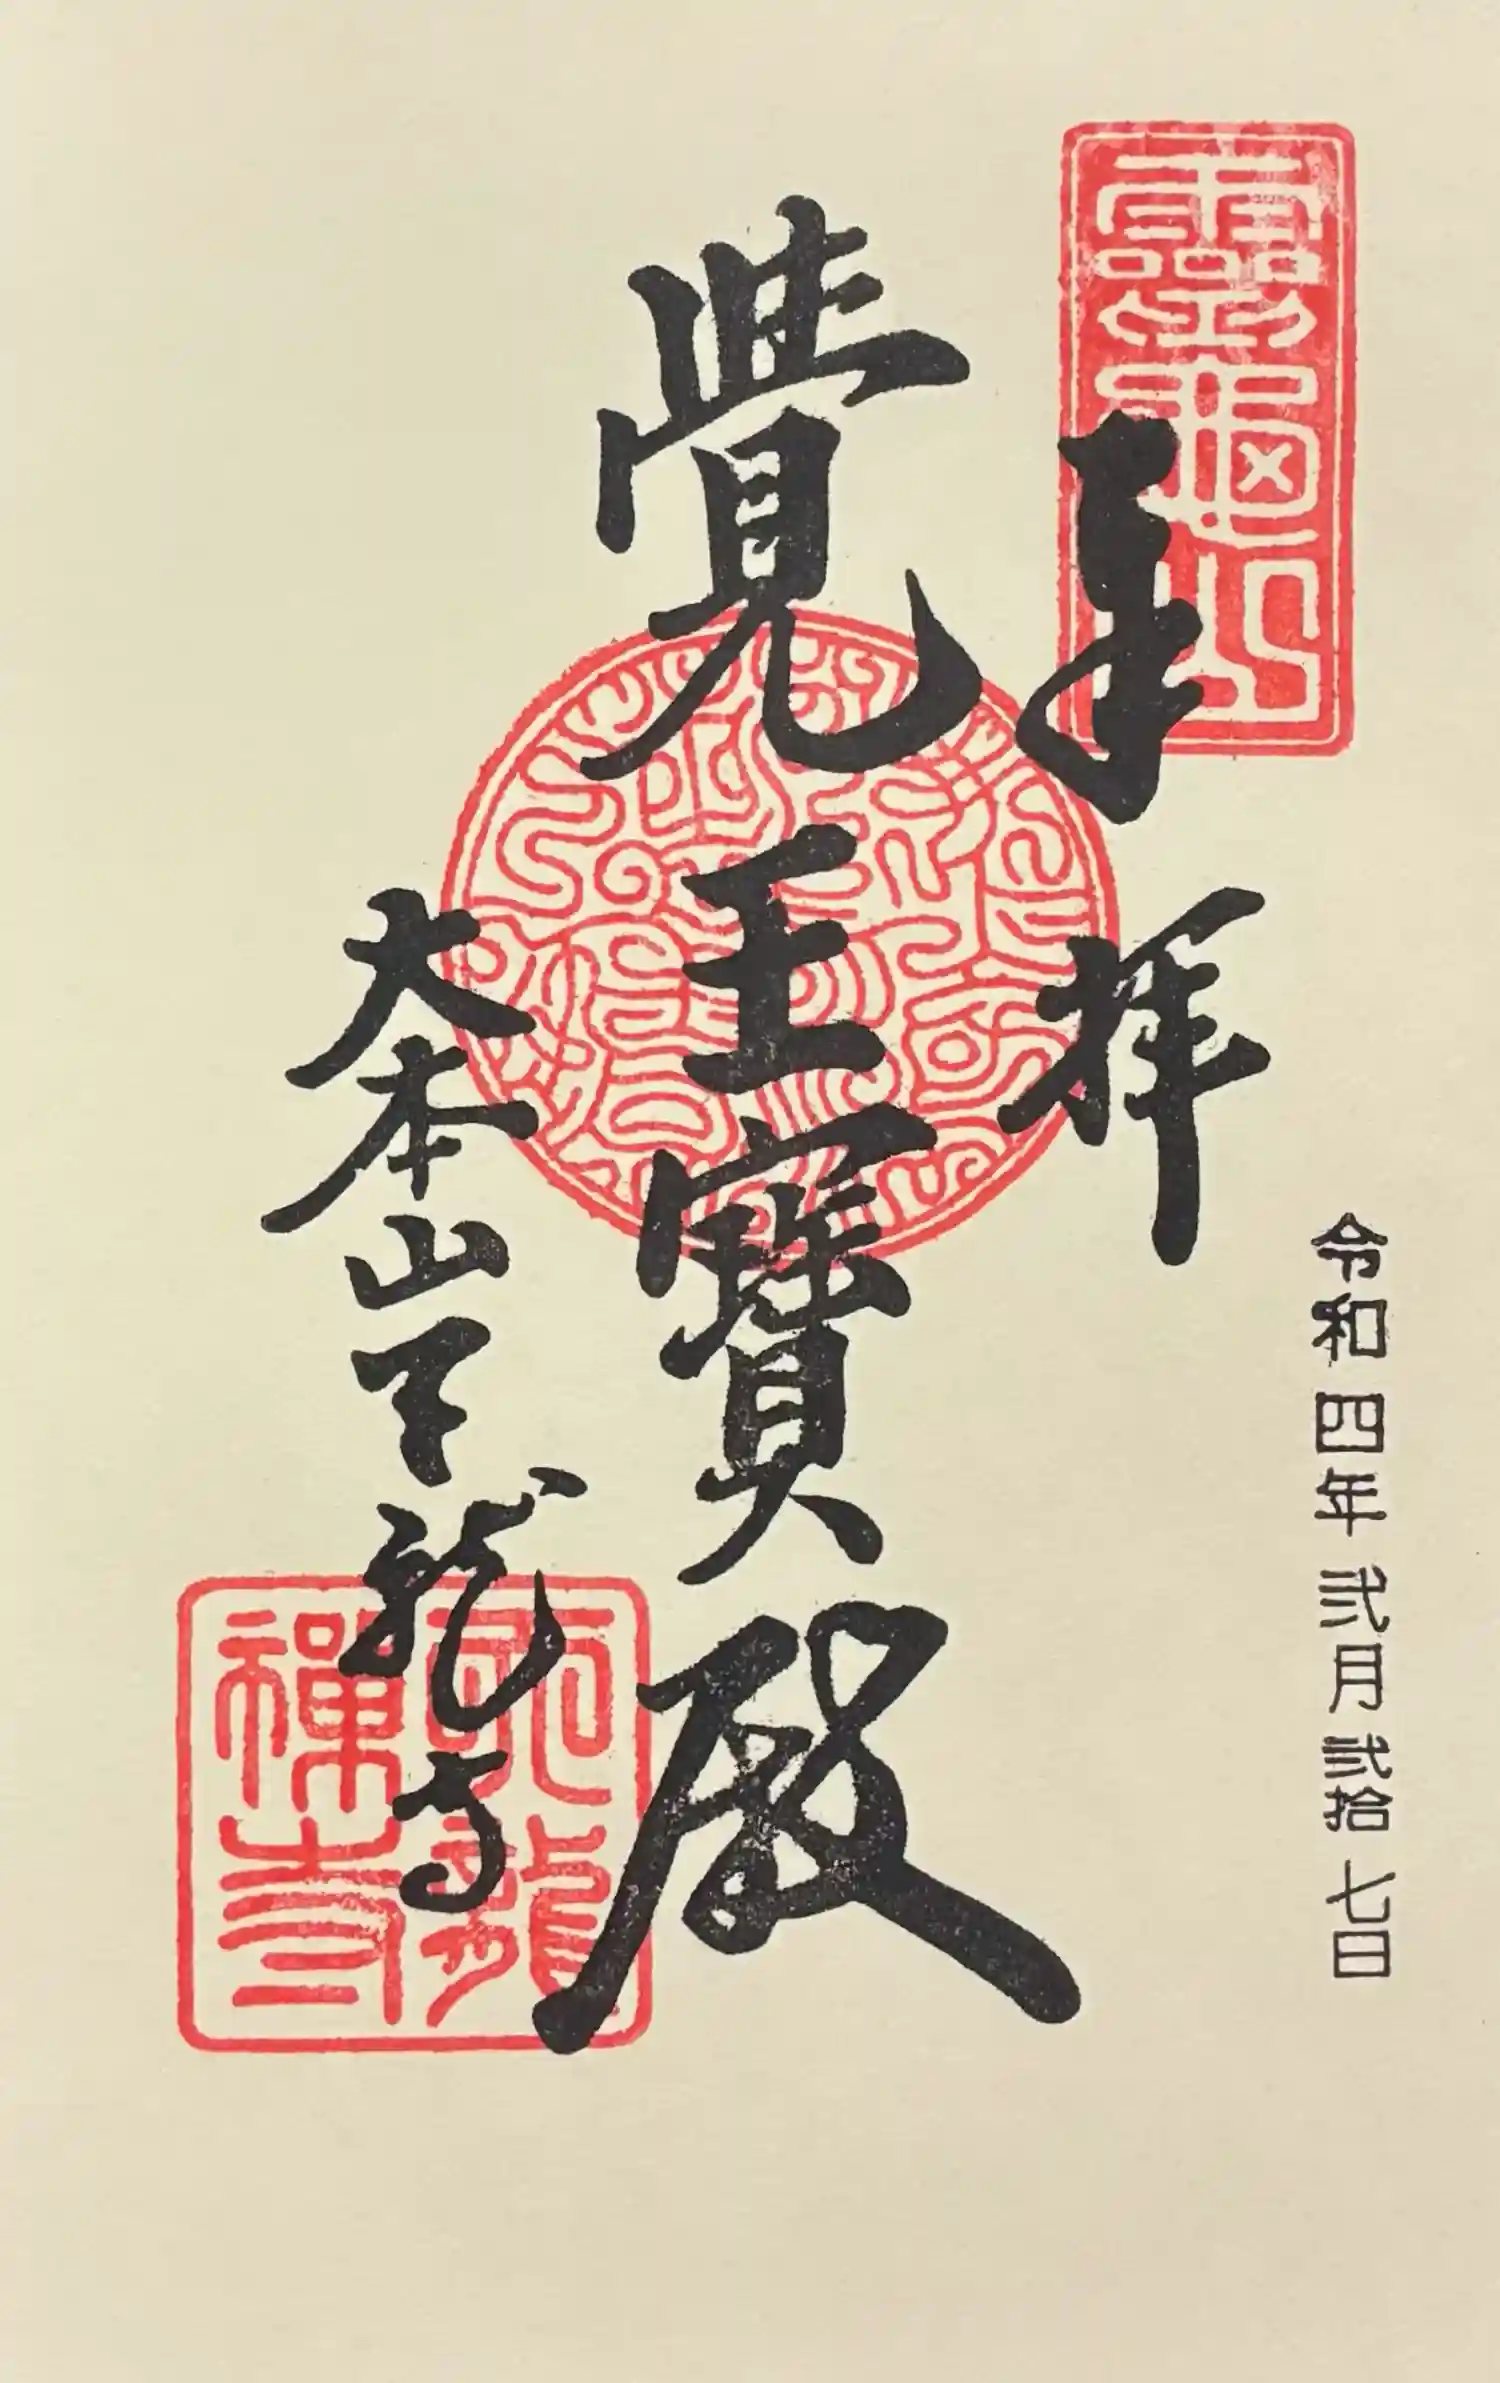 令和四年弐月弐拾七日
靈龜山
奉拝
覺王寳殿
大本山天龍寺
天龍
禅寺